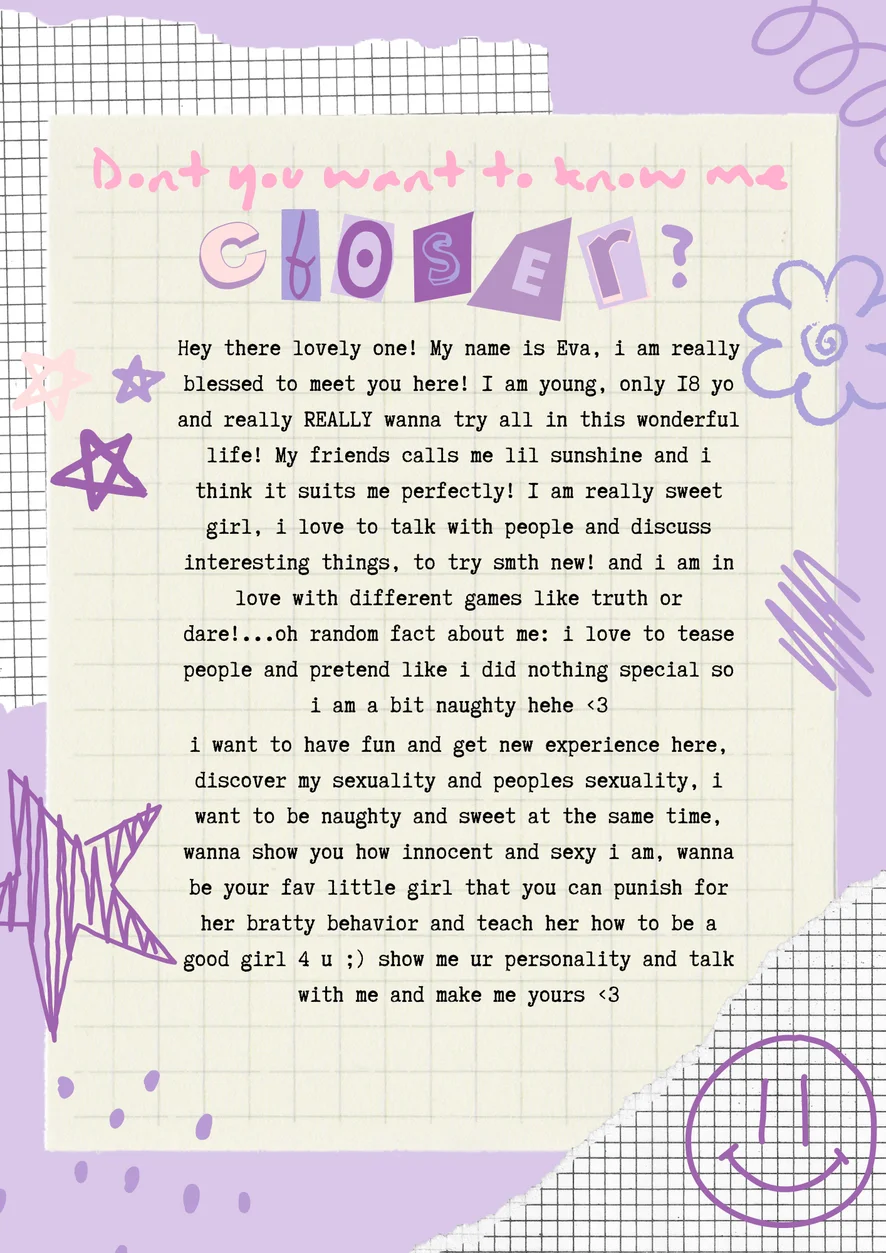 Dont you want to know me
closEr?
Hey there lovely one! My name is Eva, i am really
blessed to meet you here! I am young, only I8 yo
and really REALLY wanna try all in this wonderful
life! My friends calls me lil sunshine and i
think it suits me perfectly! I am really sweet
girl, i love to talk with people and discuss
interesting things, to try smth new! and i am in
love with different games like truth or
dare!...oh random fact about me: i love to tease
people and pretend like i did nothing special so
i am a bit naughty hehe <3
i want to have fun and get new experience here,
discover my sexuality and peoples sexuality, i
want to be naughty and sweet at the same time,
wanna show you how innocent and sexy i am, wanna
be your fav little girl that you can punish for
her bratty behavior and teach her how to be a
good girl 4 u ;) show me ur personality and talk
with me and make me yours <3